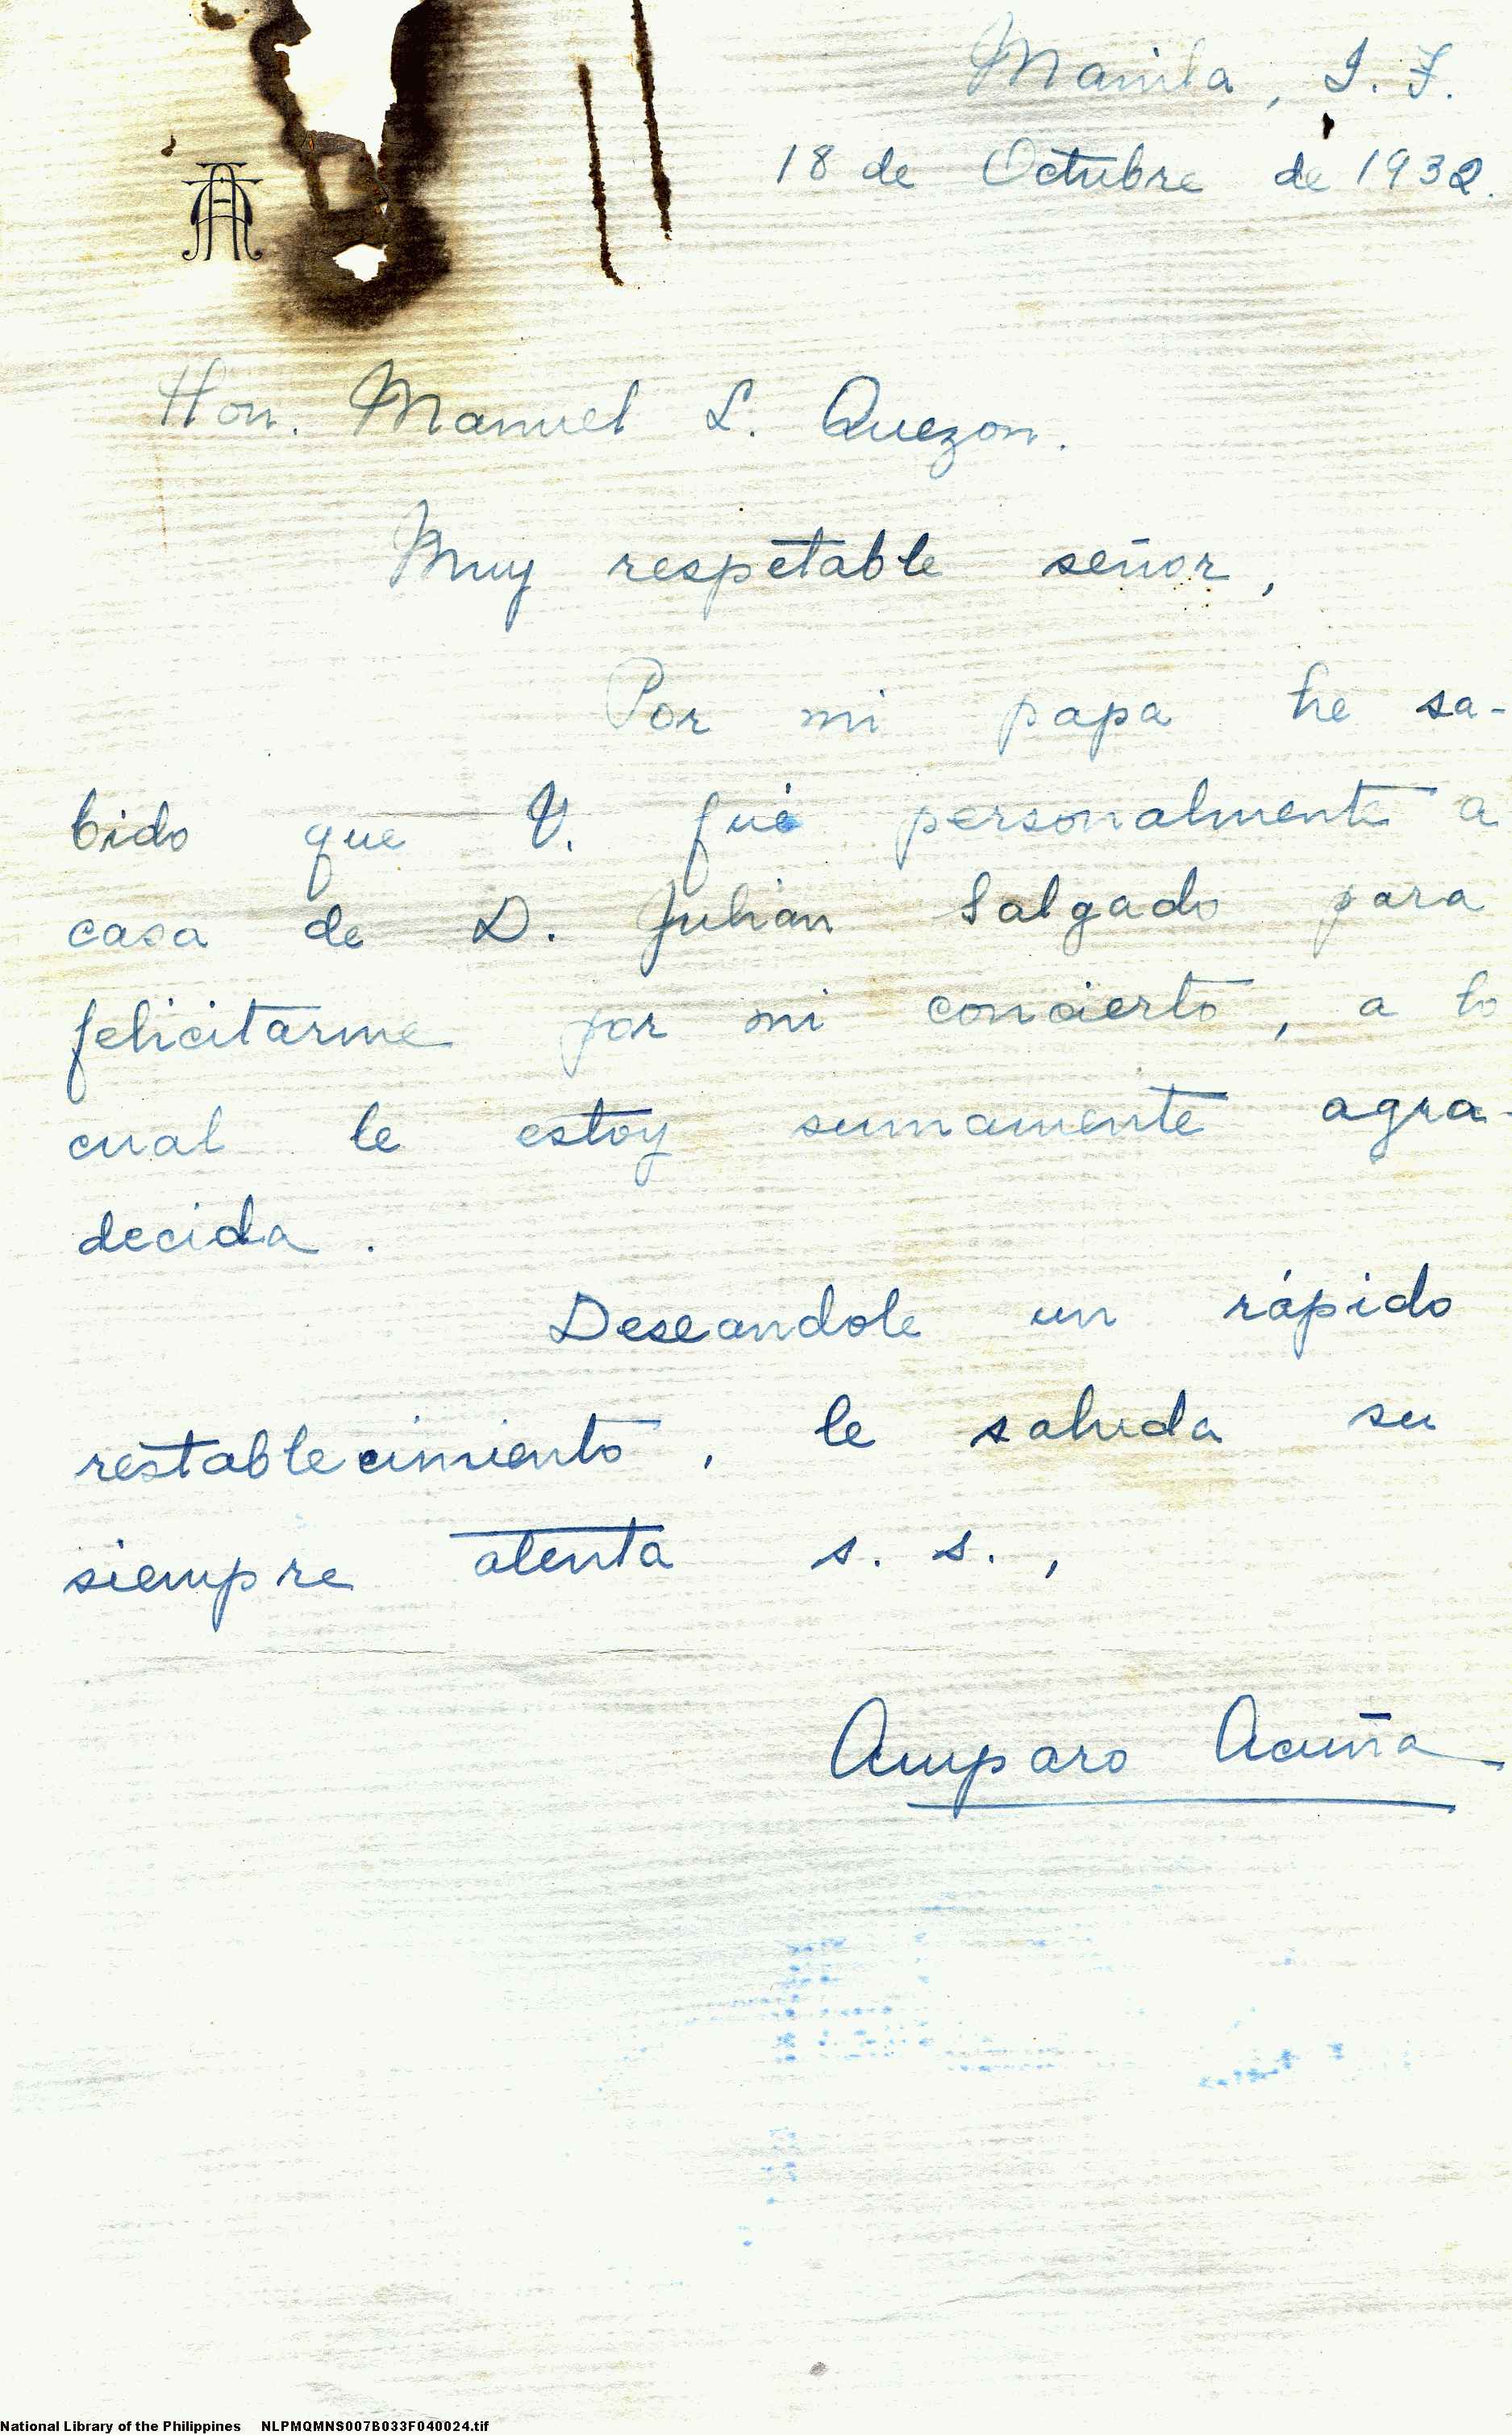 Manila, I. F.
18 de Octubre de 1932.
Hon. Manuel L. Quezon.
Muy respetable señor,
Por mi papa he sa-
bido que V. fué personalmente a
casa de D. Julian Salgado para
felicitarme por mi concierto, a lo
cual le estoy sumamente agra-
decida.
Deseandole un rápido
restablecimiento, le saluda su
siempre atenta s. s.,
Amparo Acuña
National Library of the Philippines NLPMQMNS007B033F040024.tif